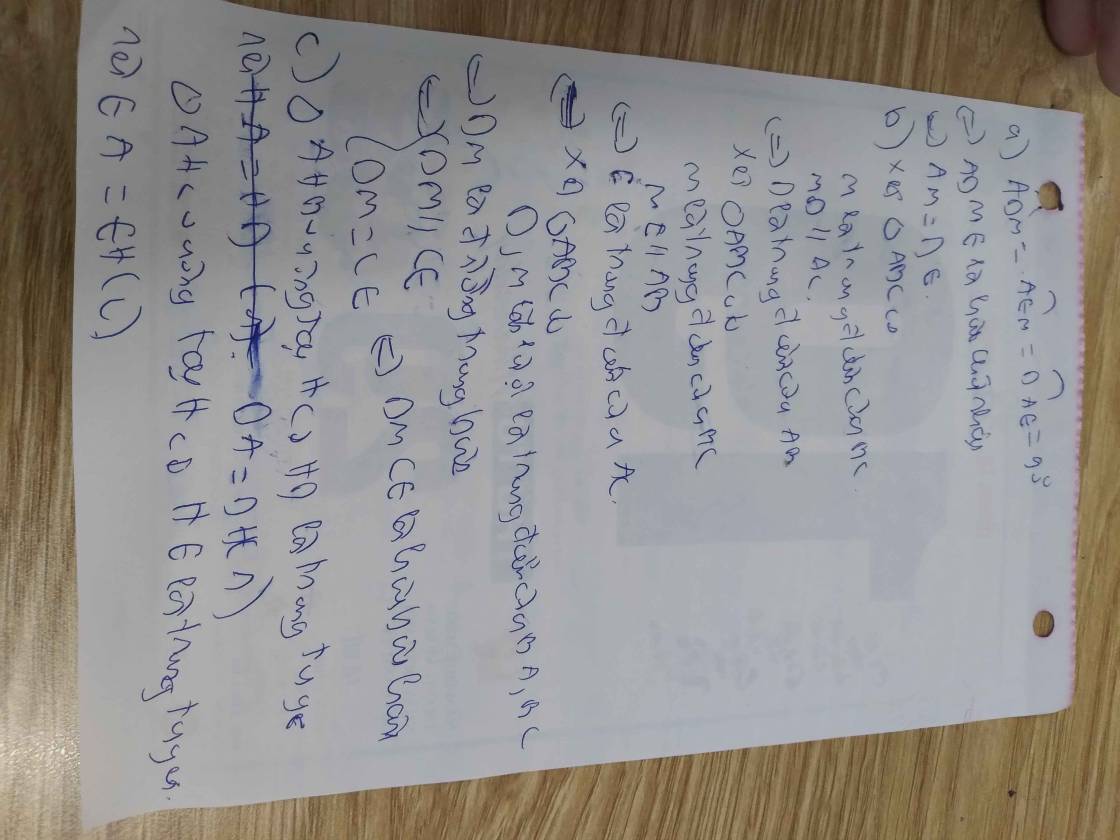 a) ADM = AEM = DAE = 90°
=) ADME là hình chữ nhật
=) AM = DE.
b) Xét Δ ABC có
M là trung điểm của BC
MD // AC.
=) D là trung điểm của AB
Xét Δ ABC có
M là trung điểm của BC
ME // AB
=) E là trung điểm của AC.
=) Xét Δ ABC có
D, M lần lượt là trung điểm của BA, BC
=) DM là đường trung bình
=) DM // CE
DM = CE =) DMCE là hình bình hành
c) Δ AHB vuông tại H có HD là trung tuyế
nên HA = HD DA = DH (1)
Δ AHC vuông tại H có HE là trung tuyến.
nên EA = EH (2)